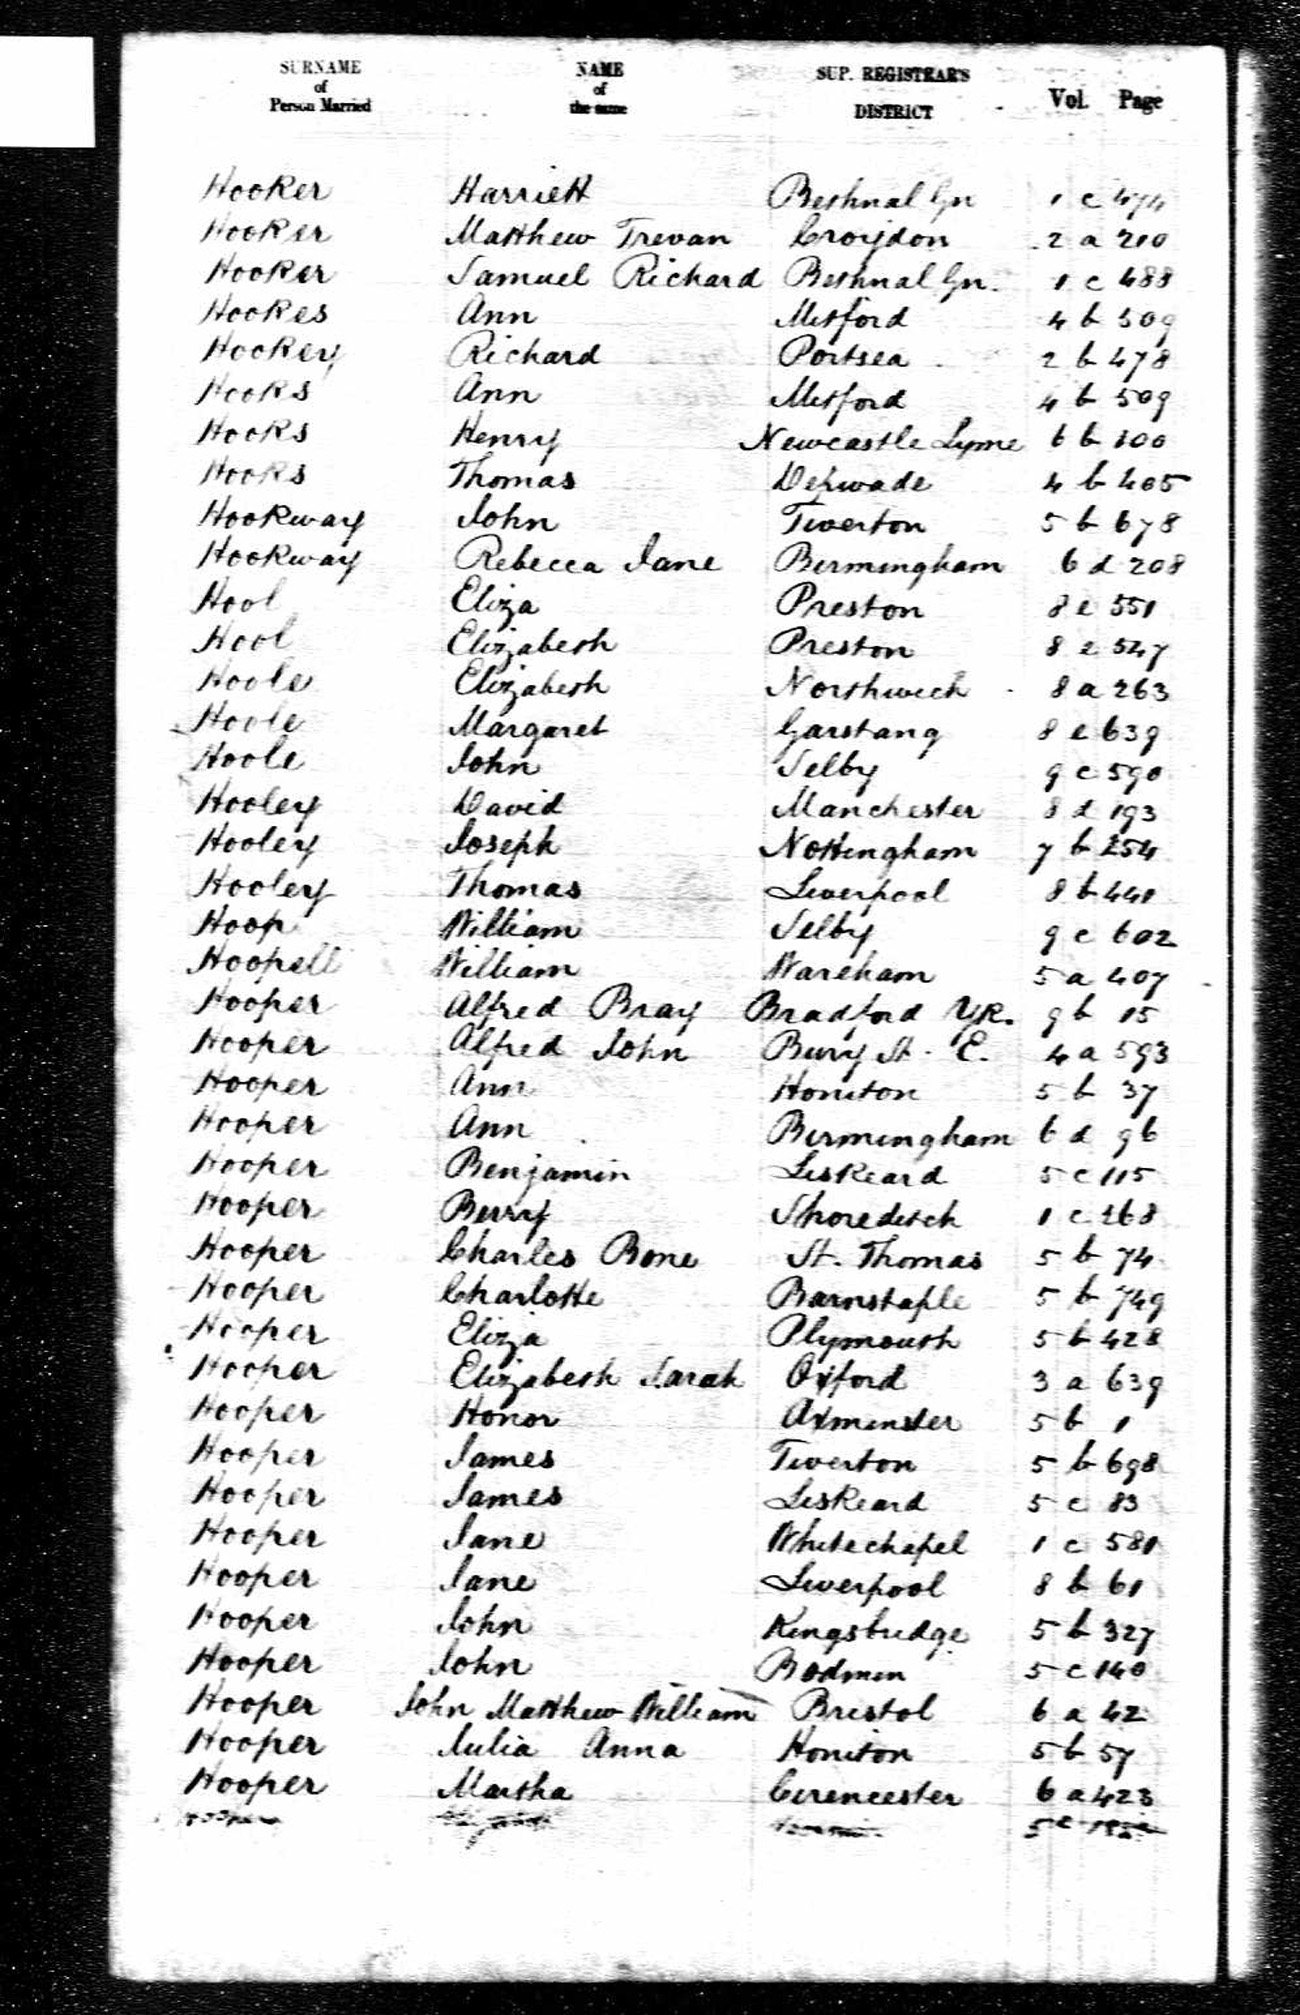 SURNAME NAME SUP. REGISTRAR'S
of of Vol. Page
Person Married the same DISTRICT
Hooker Harriett Bethnal Gn 1 c 474
Hooker Matthew Trevan Croydon 2 a 210
Hooker Samuel Richard Bethnal Gn. 1 c 488
Hookes Ann Mitford 4 b 509
Hookey Richard Portsea 2 b 478
Hooks Ann Mitford 4 b 509
Hooks Henry Newcastle Lyme 6 b 100
Hooks Thomas Depwade 4 b 405
Hookway John Tiverton 5 b 678
Hookway Rebecca Jane Birmingham 6 d 208
Hool Eliza Preston 8 e 551
Hool Elizabeth Preston 8 e 547
Hoole Elizabeth Northwich 8 a 263
Hoole Margaret Garstang 8 e 639
Hoole John Selby 9 c 590
Hooley David Manchester 8 d 193
Hooley Joseph Nottingham 7 b 254
Hooley Thomas Liverpool 8 b 441
Hoop William Selby 9 c 602
Hoopell William Wareham 5 a 407
Hooper Alfred Bray Bradford YK. 9 b 15
Hooper Alfred John Bury St. E. 4 a 593
Hooper Ann Honiton 5 b 37
Hooper Ann Birmingham 6 d 96
Hooper Benjamin Liskeard 5 c 115
Hooper Berry Shoreditch 1 c 268
Hooper Charles Bone St. Thomas 5 b 74
Hooper Charlotte Barnstaple 5 b 749
Hooper Eliza Plymouth 5 b 428
Hooper Elizabeth Sarah Oxford 3 a 639
Hooper Honor Axminster 5 b 1
Hooper James Tiverton 5 b 698
Hooper James Liskeard 5 c 83
Hooper Jane Whitechapel 1 c 581
Hooper Jane Liverpool 8 b 61
Hooper John Kingsbridge 5 b 327
Hooper John Bodmin 5 c 140
Hooper John Matthew William Bristol 6 a 42
Hooper Julia Anna Honiton 5 b 57
Hooper Martha Cirencester 6 a 423